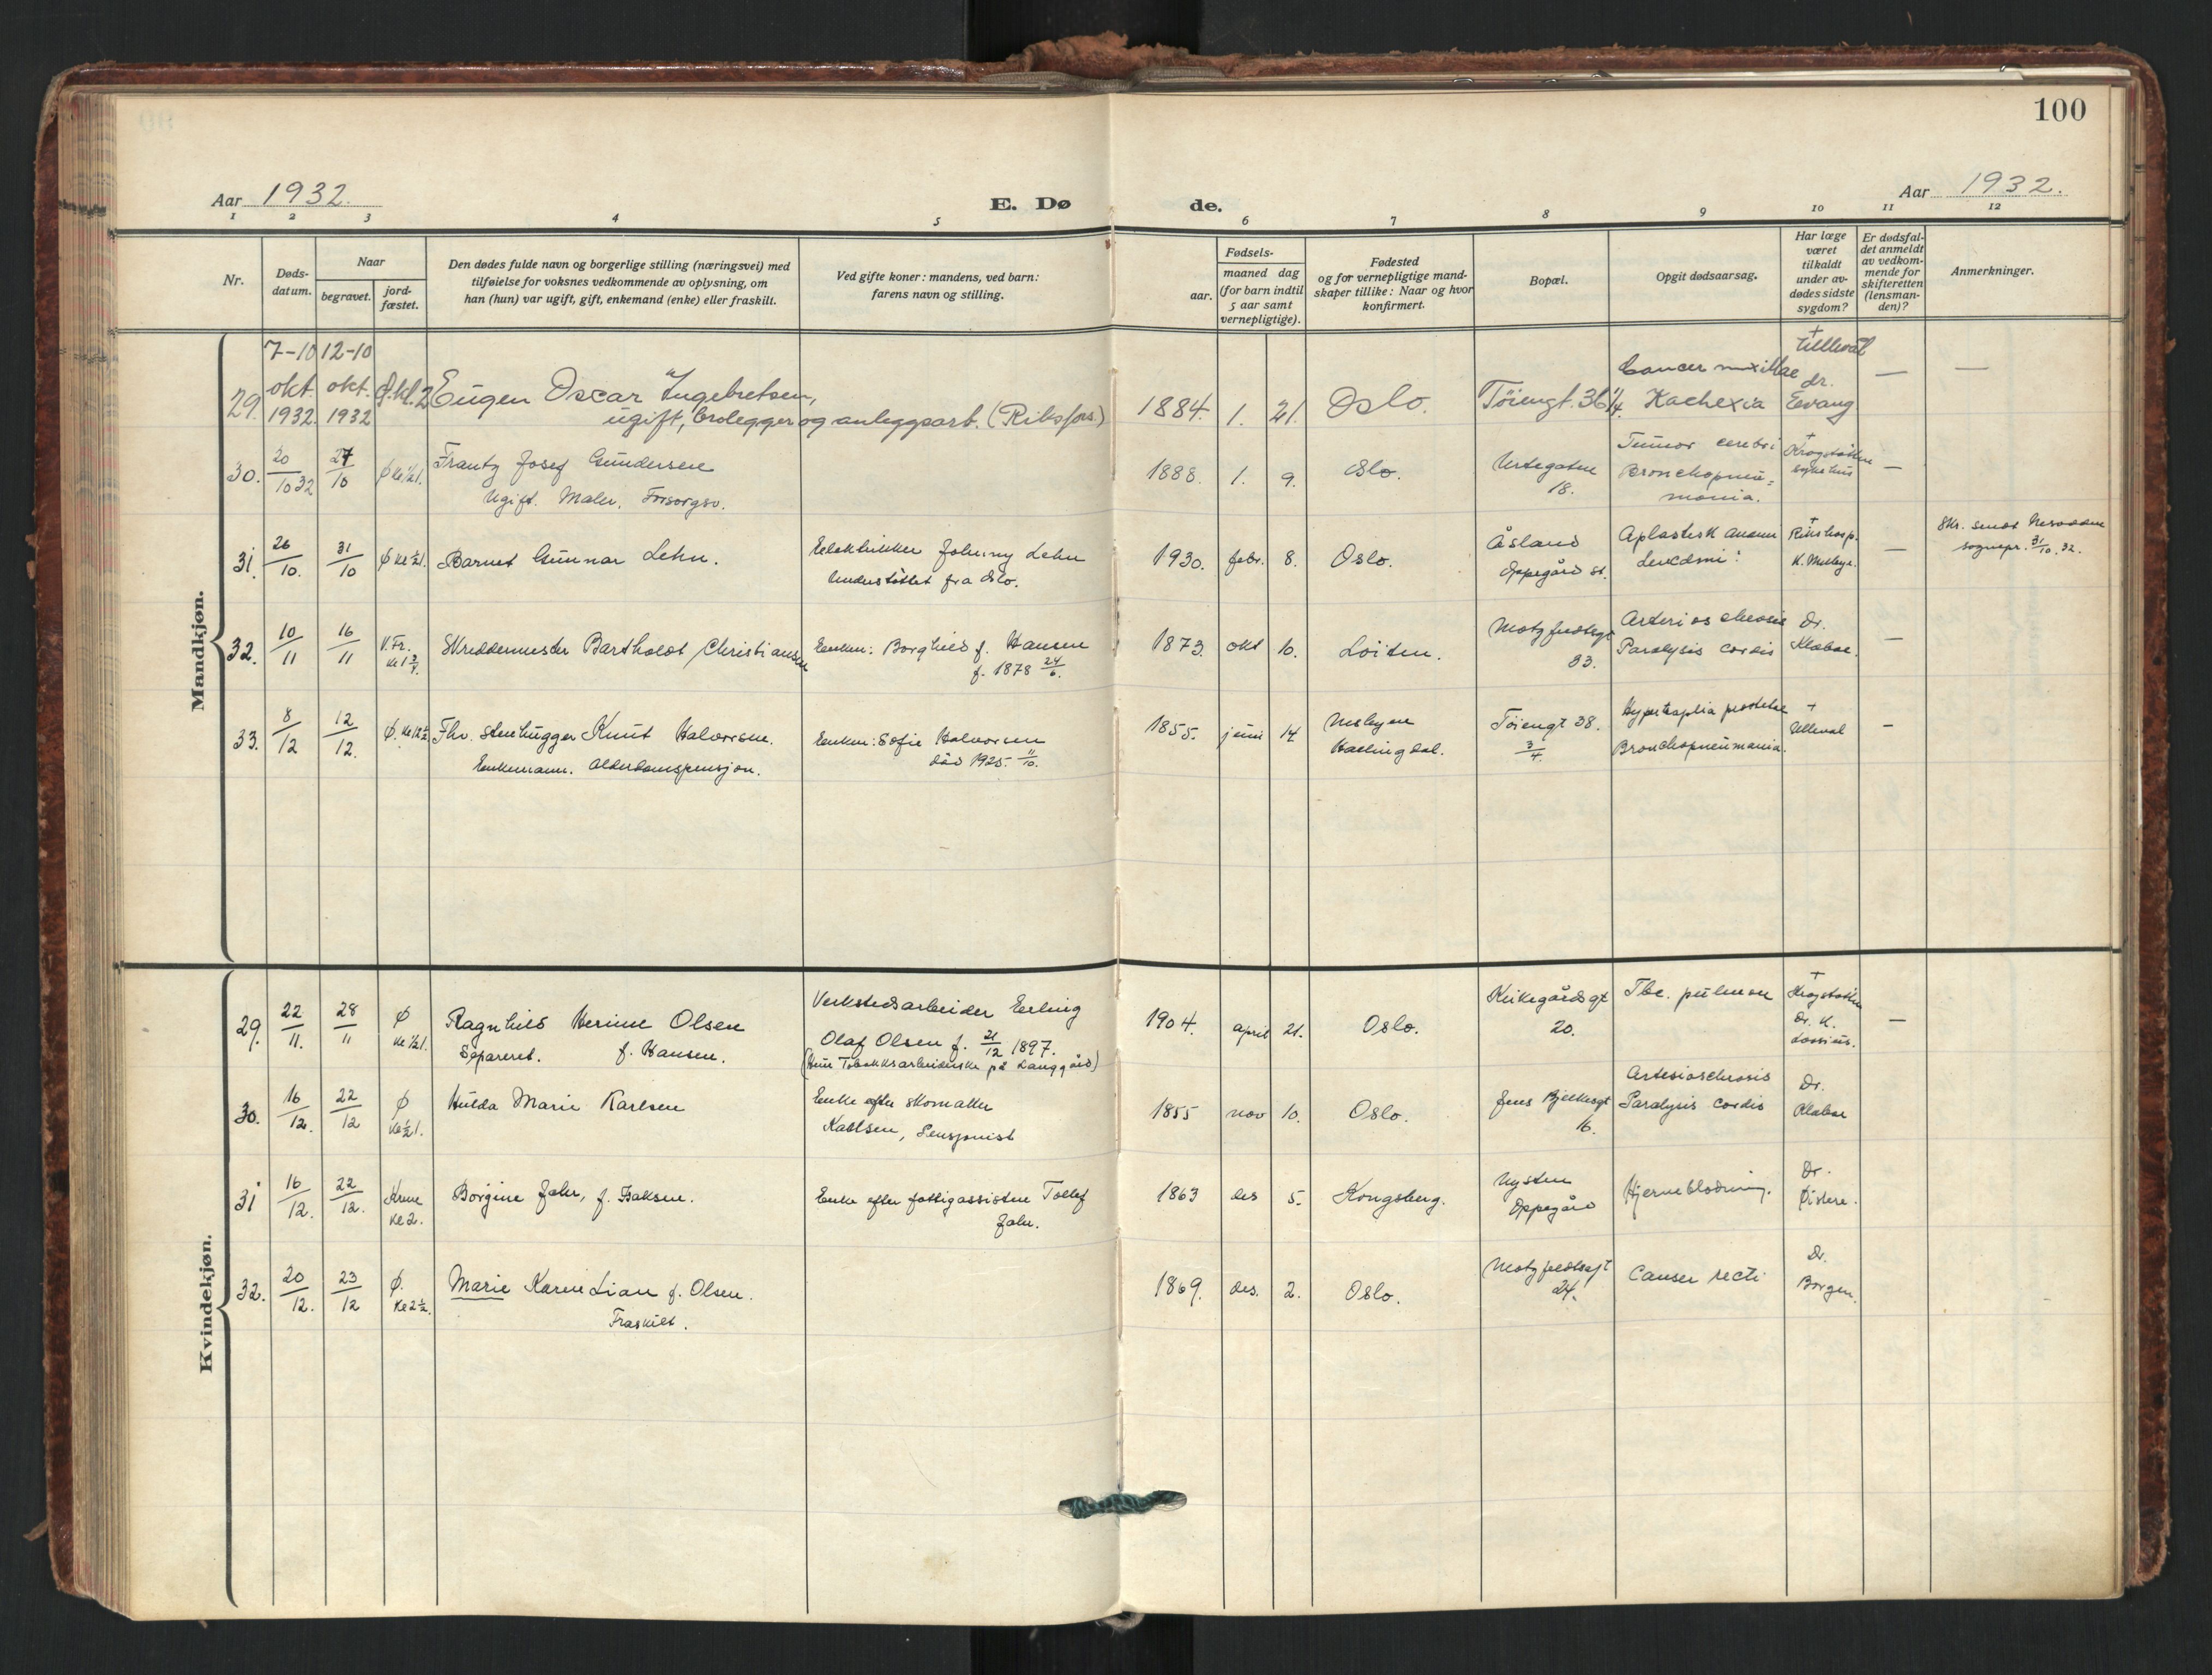 100
Aar 1932.
E. Dø
de.
Aar 1932.
1 2 3 4 5 6 7 8 9 10 11 12
Nr.
Døds-
datum.
Naar
begravet.
jord-
fæstet.
Den dødes fulde navn og borgerlige stilling (næringsvei) med
tilføielse for voksnes vedkommende av oplysning, om
han (hun) var ugift, gift, enkemand (enke) eller fraskilt.
Ved gifte koner: mandens, ved barn:
farens navn og stilling.
aar.
Fødsels-
maaned dag
(for barn indtil
5 aar samt
vernepligtige).
Fødested
og for vernepligtige mand-
skaper tillike: Naar og hvor
konfirmert.
Bopæl.
Opgit dødsaarsag.
Har læge
været
tilkaldt
under av-
dødes sidste
sygdom?
Er dødsfal-
det anmeldt
av vedkom-
mende for
skifteretten
(lensman-
den)?
Anmerkninger.
Mandkjøn.
29. 7-10 okt. 1932. 12-10 okt. 1932 Ø.kl.2
Eugen Oscar Ingebretsen,
ugift, brolegger og anleggsarb. (Riksfors.)
1884. 1. 21. Oslo. Tøiengt. 36 1/4.
Cancer maxillae
Kachexia
+ Ullevål
dr.
Evang
— —
30. 20/10 32 27/10 Ø kl 1/2 1.
Frantz Josef Gundersen
Ugift. Maler. Forsorgsv.
1888. 1. 9. Oslo. Urtegaten
18.
Tumor cerebri
Bronchopneu-
monia.
+ Krogstøtten
sykehus
—
31. 26/10. 31/10 Ø kl 1/2 1.
Barnet Gunnar Lehn.
Elektriker Johnny Lehn
Understøttet fra Oslo.
1930. febr. 8. Oslo. Åsland
Oppegård st.
Aplastisk anemi
+ Rikshosp.
—
Skr. sendt Nesodden
sognepr. 31/10. 32.
32. 10/11 16/11 V.Fr.
Skreddermester Bartholdt Christiansen
Enken: Borghild f. Hansen
f. 1878 24/6.
1873. okt 10. Løiten. Motzfeldtsgt
33.
Arteriosclerosis
Paralysis cordis
Dr.
Klabæe.
—
33. 8/12 12/12. Ø. kl 12 1/2
Fhv. stenhugger Knut Halvorsen.
Enkemann. Alderdomspensjon.
Enken: Sofie Halvorsen
død 1925. 11/10.
1855. juni 14 Nesbyen
Hallingdal.
Tøiengt 38.
3/4.
Hypertrophia prostatae
Bronchopneumonia.
+
Ullevål
—
Kvindekjøn.
29. 22/11. 28/11 Ø kl 1/2 1.
Ragnhild Herine Olsen
Separert. f. Hansen.
Verkstedsarbeider Erling
Olaf Olsen f. 21/12 1897.
(Hun Tobakksarbeiderske på Langgård)
1904. april 21. Oslo. Kirkegårdsgt
20.
Tbc. pulmon
+
Krogstøtten
Dr. K.
Lossius.
—
30. 16/12. 22/12 Ø kl 1/2 1.
Hulda Marie Karlsen
Enke efter skomaker
Karlsen, Pensjonist
1855 nov 10. Oslo. Jens Bjelkesgt
16.
Arteriosclerosis
Paralysis cordis
Dr.
31 16/12. 22/12. kl 2.
Borgine Jahr, f. Isaksen.
Enke efter fattigassistent Tollef
Jahr.
1863 des 5. Kongsberg. Nysten
Oppegård
Hjerneblødning.
Dr.
32. 20/12. 23/12 Ø. kl 2 1/2.
Marie Karine Lian f. Olsen.
Fraskilt.
1869. des. 2. Oslo. Motzfeldtsgt
24.
Canser recti
Dr.
Borgen.